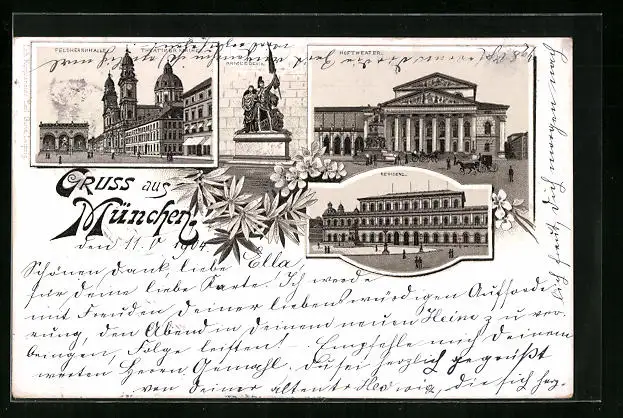 FELDHERRNHALLE.
THEATINER KIRCHE.
ARMEEDENK.
HOFTHEATER.
RESIDENZ.
Gruss aus
München.
den 11. V 1904
Schönen Dank liebe Ella
für deine liebe Karte. Ich werde
mit Freuden Deiner liebenswürdigen Aufforde
rung, den Abend in Deinem neuen Heime zu ver
bringen, Folge leisten. Empfehle mich Deinem
werten Herrn Gemahl. Du sei herzlich gegrüßt
von Deiner alten Hedwig, die sich herz-
lich freut, Dich morgen nach